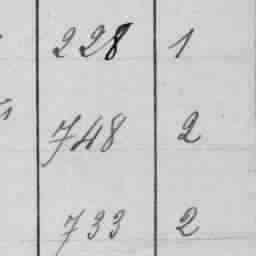 228 1
748 2
733 2